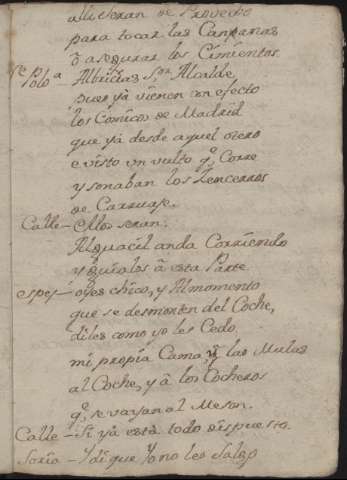 alli seran de Provecho
para tocar las Campanas
ô asegurar los Cimientos.
Polo ᵃ - Albricias Sor. Alcalde,
pues yâ vienen en efecto
los Comicos de Madrid
que yâ desde aquel otero
e visto un vulto q.e Corre
y sonaban los Zencerros
de Carruaje.
Calle - ellos seran.
Alguacil anda Corriendo
y Guialos â esta Parte
espej - oyes chico, y Al momento
que se desmonten del Coche,
diles como yo les Cedo
mi propia Cama, â las Mulas
al Coche, y â los Cocheros
q.e se vayan al Meson.
Calle - Si yâ està todo dispuesto.
Soria - Y di que Yo no les Salgo